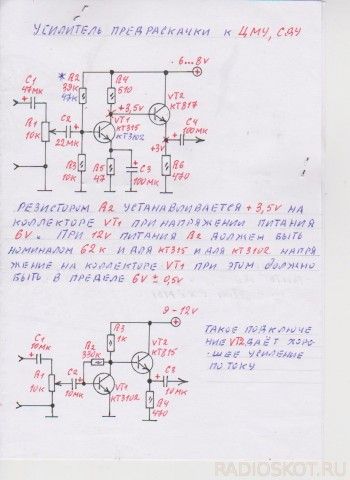 УСИЛИТЕЛЬ ПРЕДРАСКАЧКИ К ЦМУ, СДУ
+ 6...8V
C1
47МК
* R2
33К
47К
R4
510
+3,5V
VT2
КТ817
R1
10К
C2
22МК
VT1
КТ315
КТ3102
+3V
C4
100МК
R3
10К
R5
47
C3
100МК
R6
470
РЕЗИСТОРОМ R2 УСТАНАВЛИВАЕТСЯ +3,5V НА
КОЛЛЕКТОРЕ VT1 ПРИ НАПРЯЖЕНИИ ПИТАНИЯ
6V. ПРИ 12V ПИТАНИЯ R2 ДОЛЖЕН БЫТЬ
НОМИНАЛОМ 62К И ДЛЯ КТ315 И ДЛЯ КТ3102 НАПРЯ
ЖЕНИЕ НА КОЛЛЕКТОРЕ VT1 ПРИ ЭТОМ ДОЛЖНО
БЫТЬ В ПРЕДЕЛЕ 6V ± 0,5V
9-12V
C1
10МК
R2
330К
R3
1К
VT2
КТ815
R1
10К
C2
10МК
VT1
КТ3102
C3
10МК
R4
470
ТАКОЕ ПОДКЛЮЧЕ
НИЕ VT2 ДАЁТ ХОРО-
ШЕЕ УСИЛЕНИЕ
ПО ТОКУ
RADIOSKOT.RU